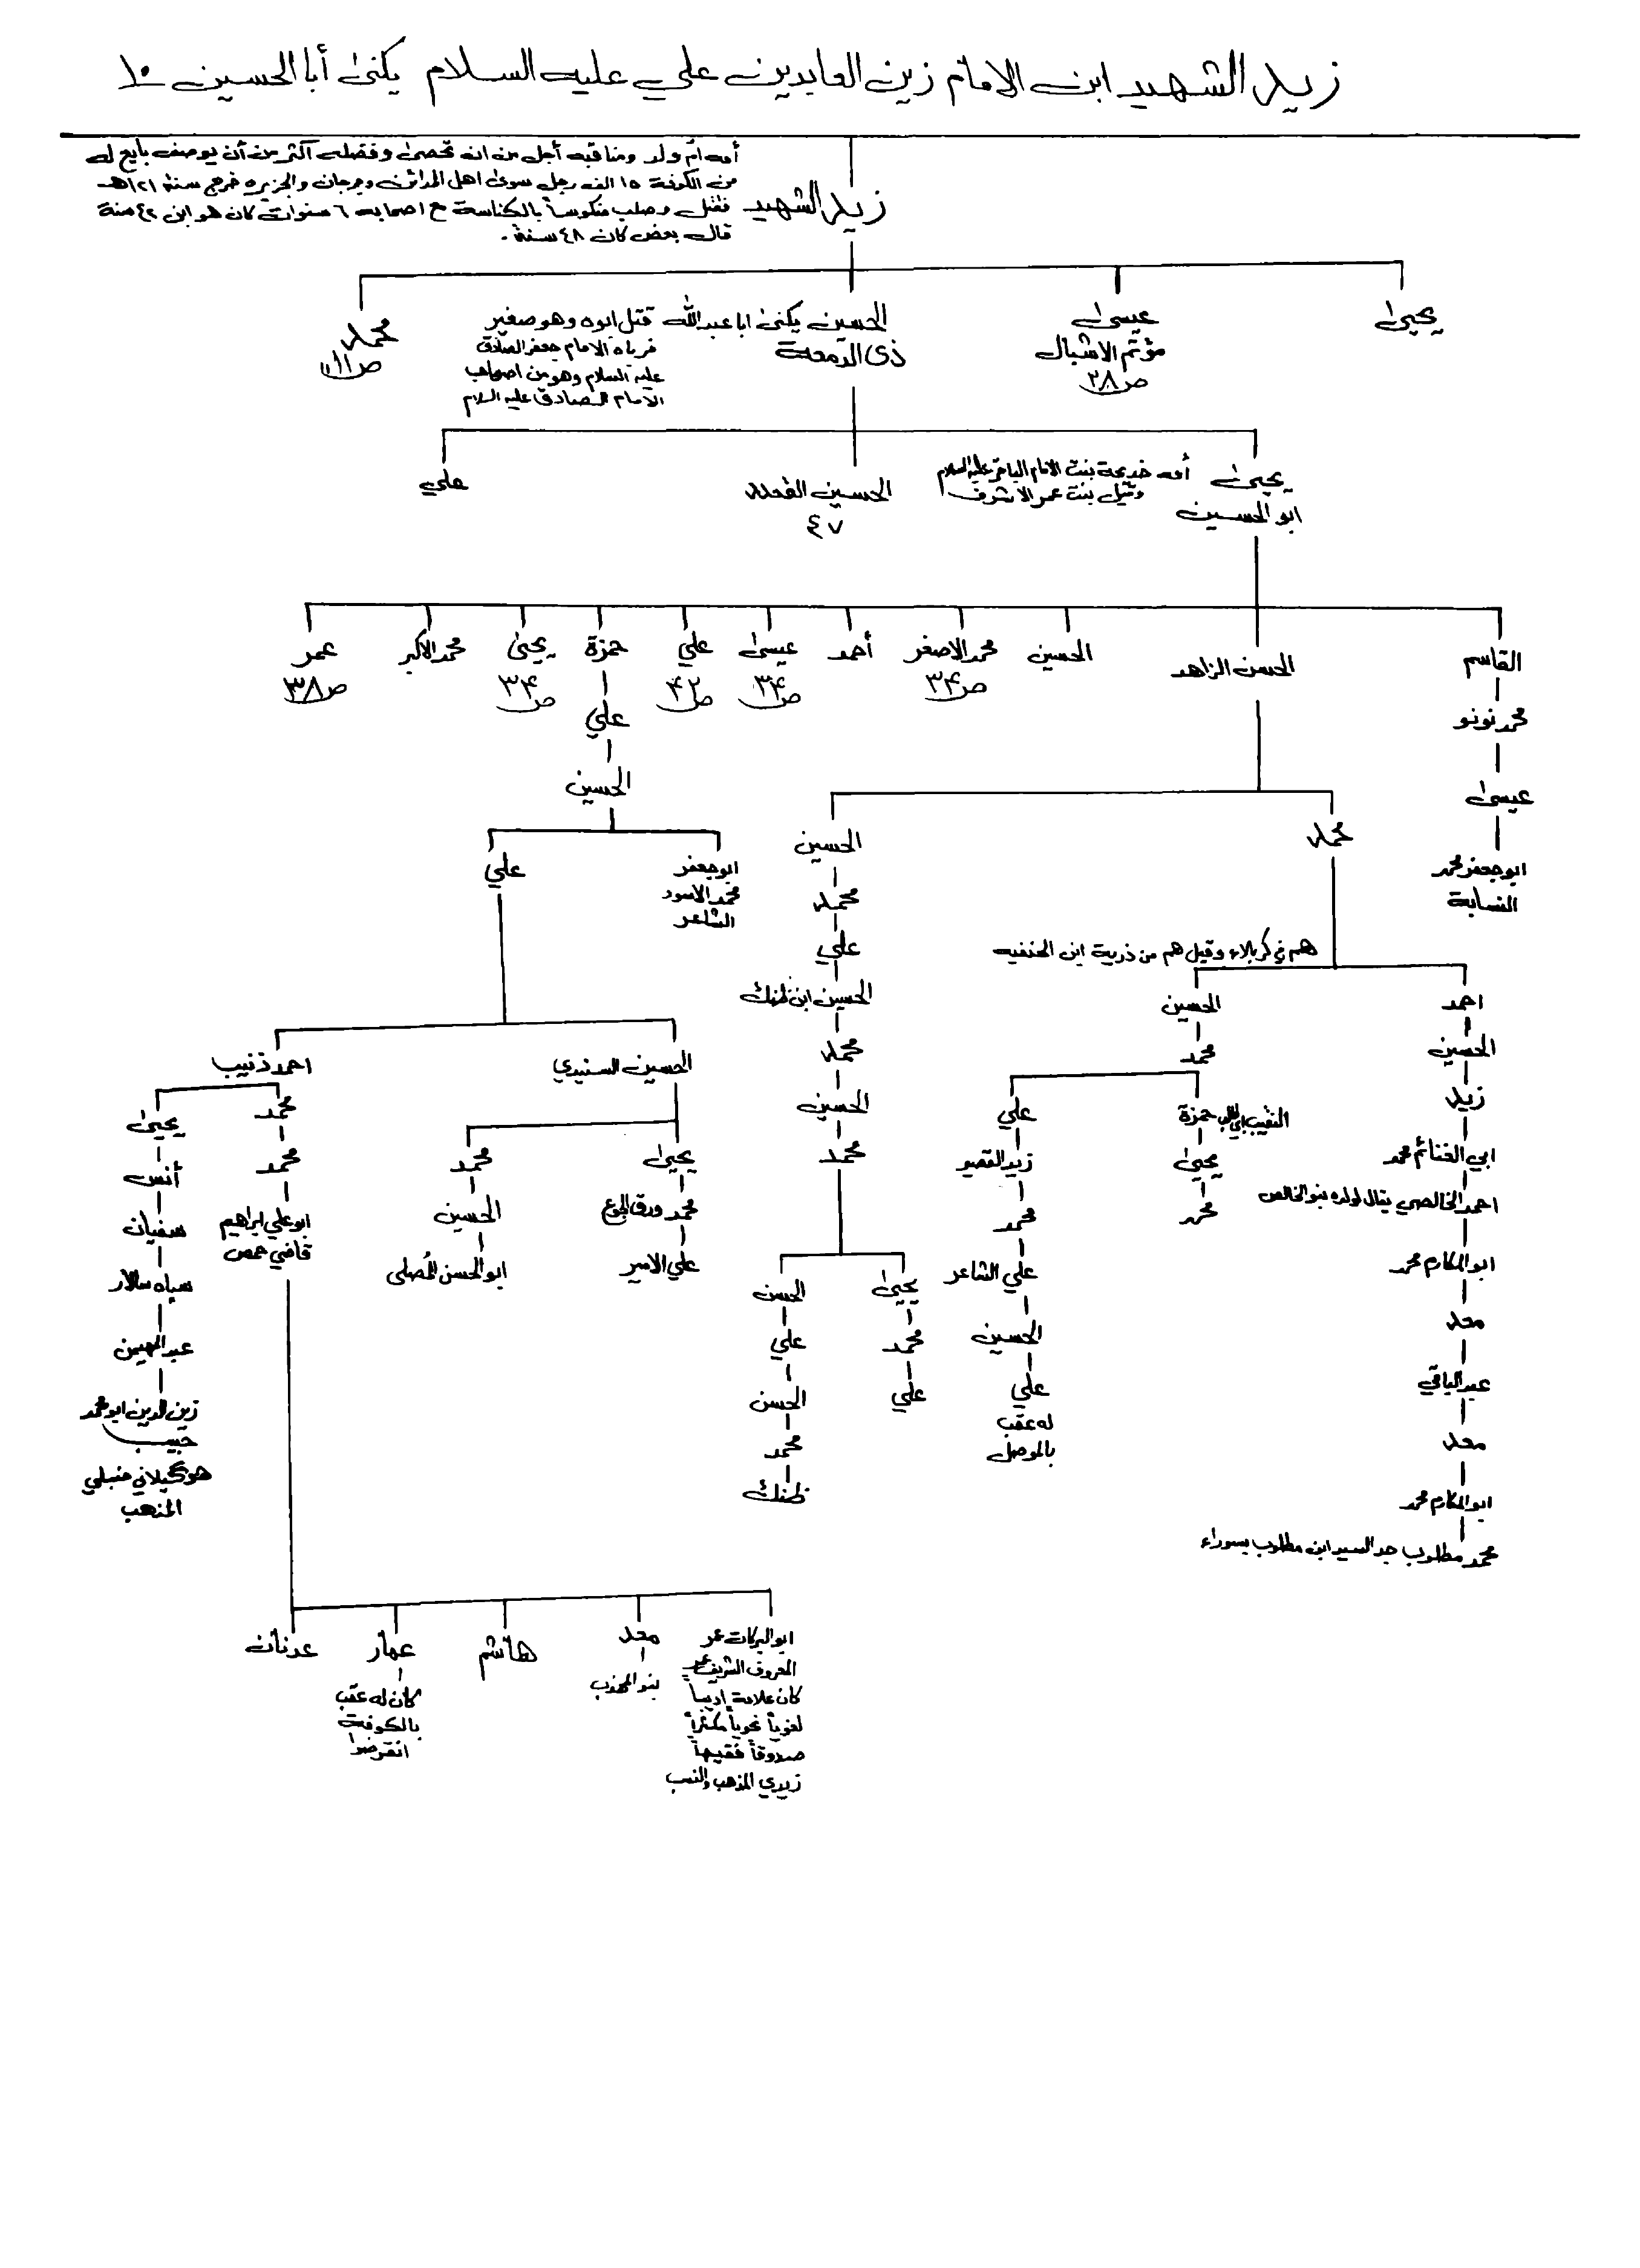 زيد الشهيد ابن الامام زين العابدين علي عليه السلام يكنى أبا الحسين ١٠
أمه أم ولد ومناقبه أجل من ان تحصى وفضله أكثر من أن يوصف بايع له
من الكوفة ١٥ الف رجل سوى اهل المدائن وجرجان والجزيره خرج سنة ١٢١هـ
فقتل وصلب منكوساً بالكناسة ع اصحابه ٦ سنوات كان هو ابن ٤٢ سنة
قال بعض كان ٤٨ سنة .
زيد الشهيد
يحيى
عيسى
مؤتم الاشبال
ص٢٨
الحسين يكنى ابا عبدالله
ذى الدمعة
قتل ابوه وهو صغير
فرباه الامام جعفر الصادق
عليه السلام وهو من اصحاب
الامام الصادق عليه السلام
محمد
ص١١١
يحيى
ابو الحسين
أمه خديجة بنت الامام الباقر عليه السلام
وقيل بنت عمر الاشرف
الحسين القعدد
٤٧
علي
القاسم
الحسن الزاهد
الحسين
محمد الاصغر
ص٣٤
أحمد
عيسى
ص٣٤
علي
ص٤٢
حمزة
يحيى
ص٣٤
محمد الاكبر
عمر
ص٣٨
محمد نونو
عيسى
ابو جعفر محمد
النسابة
علي
الحسين
ابو جعفر
محمد الاسود
الشاعر
علي
محمد
الحسين
محمد
علي
الحسين ابن ظنك
محمد
الحسين
محمد
هم في كربلاء وقيل هم من ذرية ابن الحنفيه
احمد
الحسين
زيد
ابي الغنائم محمد
احمد الخالصي يقال لولده بنو الخالص
ابو المكارم محمد
معد
عبد الباقي
معد
ابو المكارم محمد
محمد مطلوب جد السيد ابن مطلوب بسوراء
الحسين
محمد
النقيب حمزة
يحيى
محمد
علي
زيد القصير
محمد
علي الشاعر
الحسين
علي
له عقب
بالموصل
يحيى
محمد
علي
الحسن
علي
الحسن
محمد
ظنك
الحسين السنيدي
يحيى
محمد ورق الجوع
علي الامير
محمد
الحسين
ابو الحسن المُصلي
احمد ذنيب
محمد
محمد
ابو علي ابراهيم
قاضي حمص
يحيى
أنس
سفيان
سپاه سالار
عبد المهيمن
زين الدين ابو محمد
حبيب
هو گيلاني حنبلي
المذهب
ابو البركات عمر
المعروف الشريف عمر
كان علامة اديباً
لغوياً نحوياً مكثراً
صدوقاً فقيهاً
زيدي المذهب والنسب
معد
بنو المهذب
هاشم
عمار
كان له عقب
بالكوفة
انقرضوا
عدنان